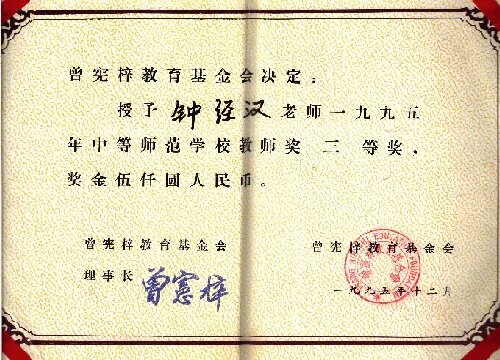 曾宪梓教育基金会决定：
授予 钟经汉 老师一九九五
年中等师范学校教师奖 三 等奖、
奖金伍仟圆人民币。
曾宪梓教育基金会
理事长 曾憲梓
曾宪梓教育基金会
一九九五年十二月